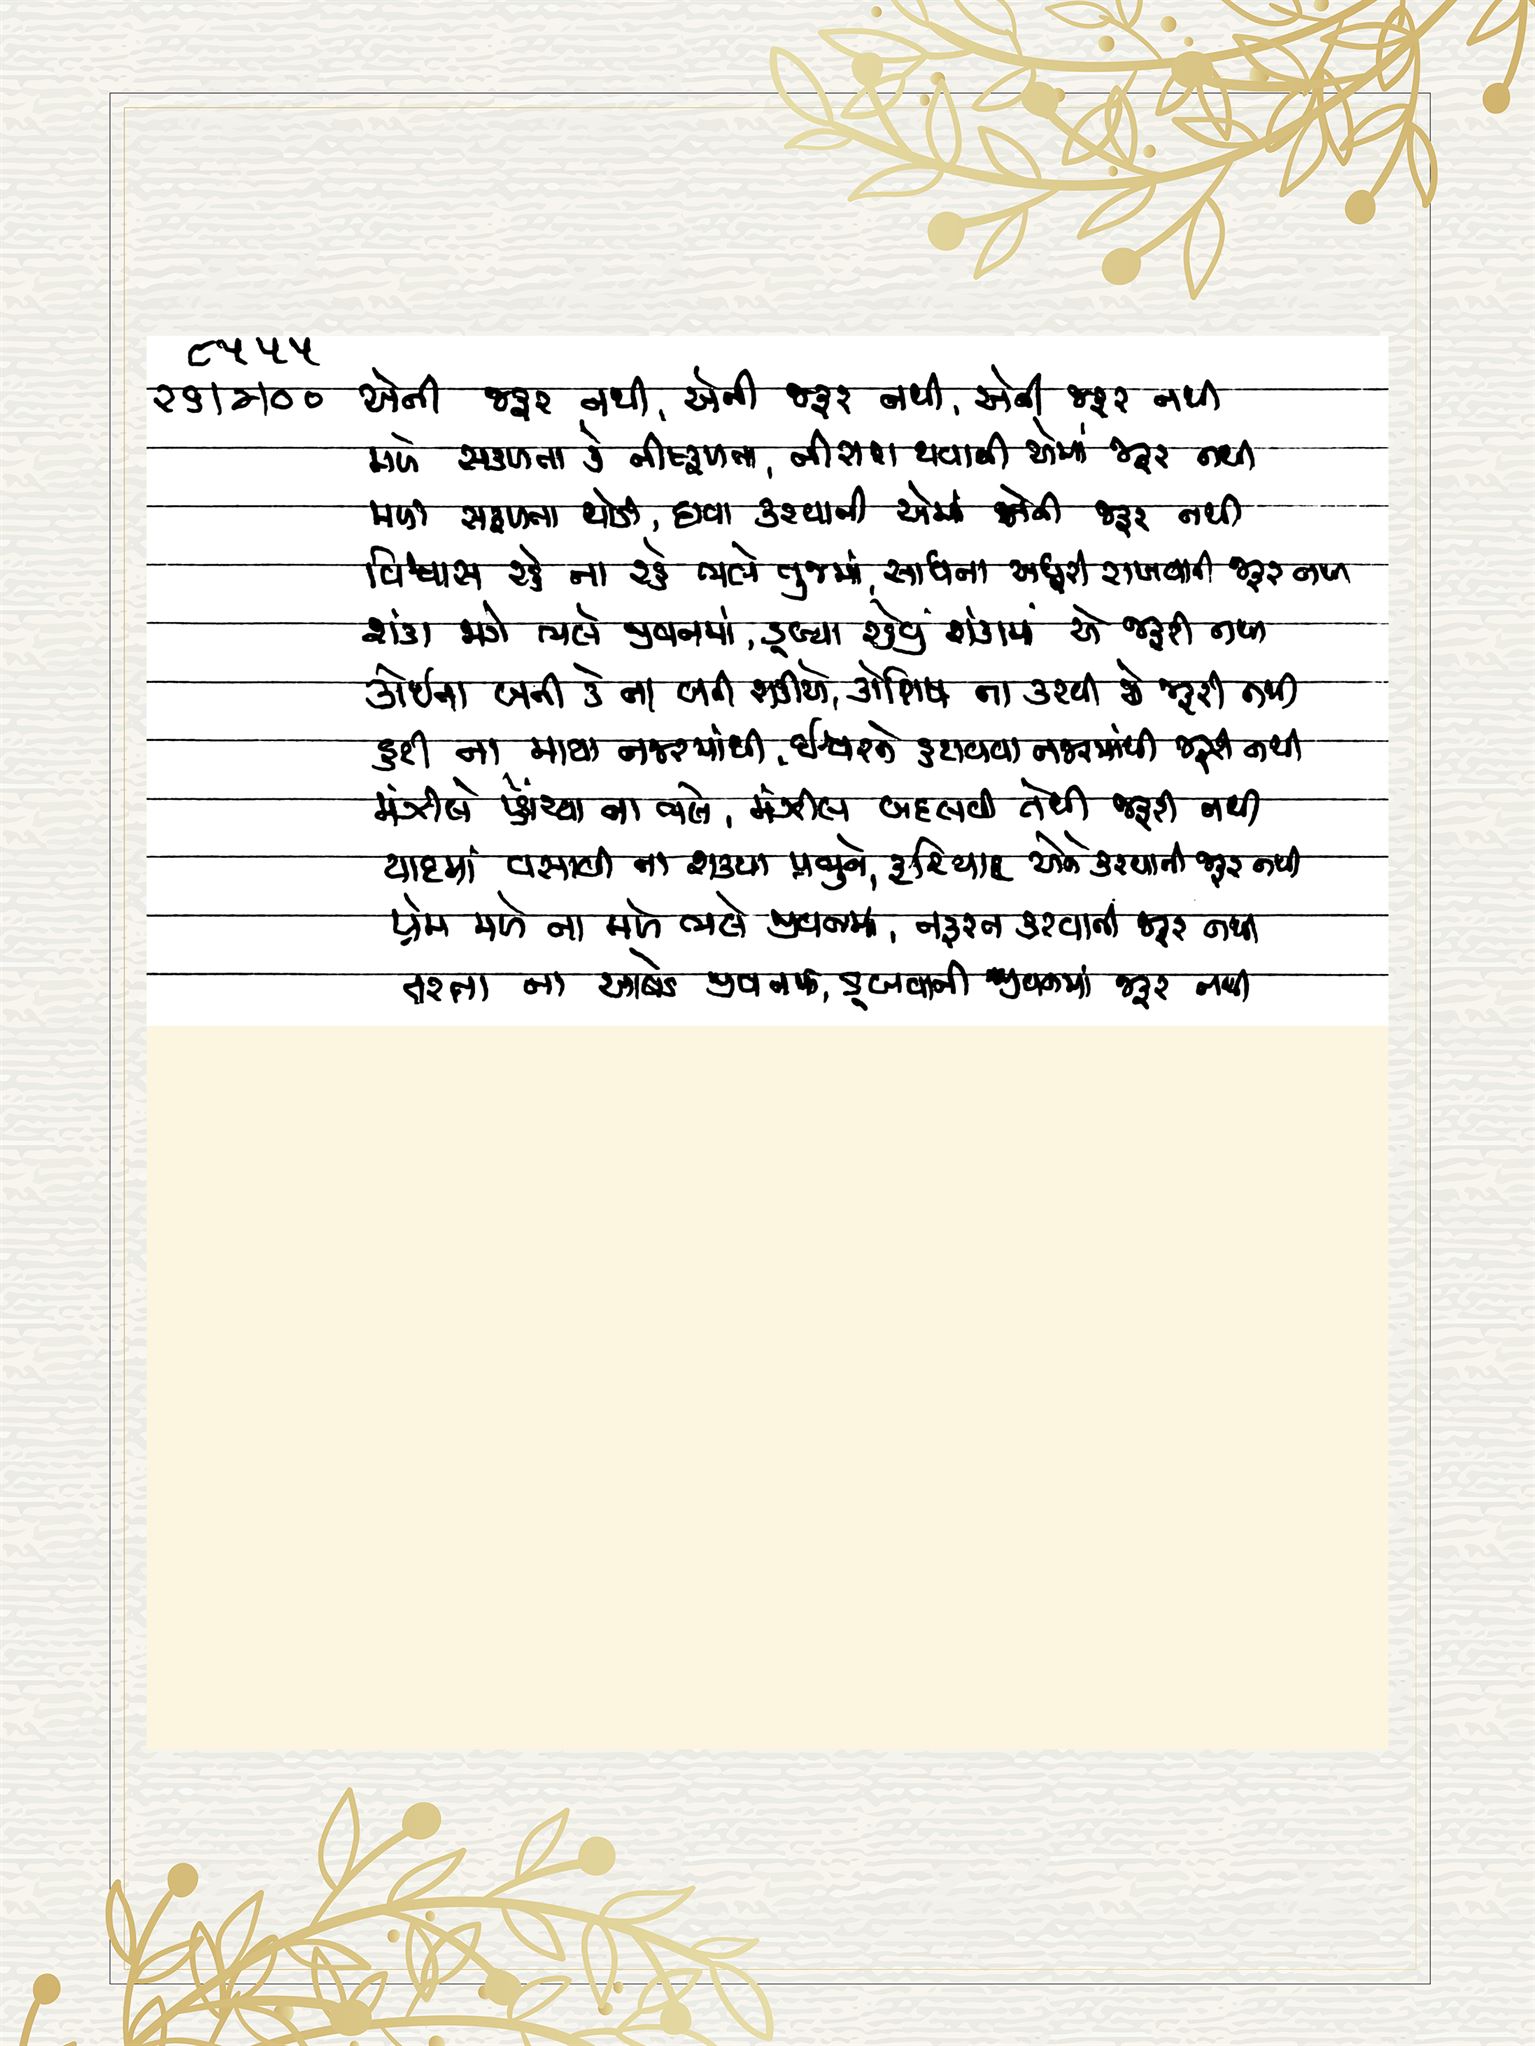 ૮૫૫૫
૨૬।૨।૦૦ એની જરૂર નથી, એની જરૂર નથી, એની જરૂર નથી
મળે સફળતા કે નીષ્ફળતા, નીરાશ થવાની એમાં જરૂર નથી
મળી સફળતા થોડી, દાવા કરવાની એમાં એની જરૂર નથી
વિશ્વાસ રહે ના રહે ભલે તુજમાં, સાધના અધૂરી રાખવાની જરૂર નથી
શંકા જાગે ભલે જીવનમાં, ડૂબ્યા રહેવું શંકામાં એ જરૂરી નથી
કોઈના બની કે ના બની શકીએ, કોશિષ ના કરવી એ જરૂરી નથી
હટી ના માયા નજરમાંથી, ઈશ્વરને હટાવવા નજરમાંથી જરૂરી નથી
મંઝીલે પ્હોંચ્યા ના ભલે, મંઝીલ બદલવી તેથી જરૂરી નથી
યાદમાં વસાવી ના શક્યા પ્રભુને, ફરિયાદ એને કરવાની જરૂર નથી
પ્રેમ મળે ના મળે ભલે જીવનમાં, નફરત કરવાની જરૂર નથી
તરતા ના આવડે જીવનમાં, ડૂબવાની જીવનમાં જરૂર નથી